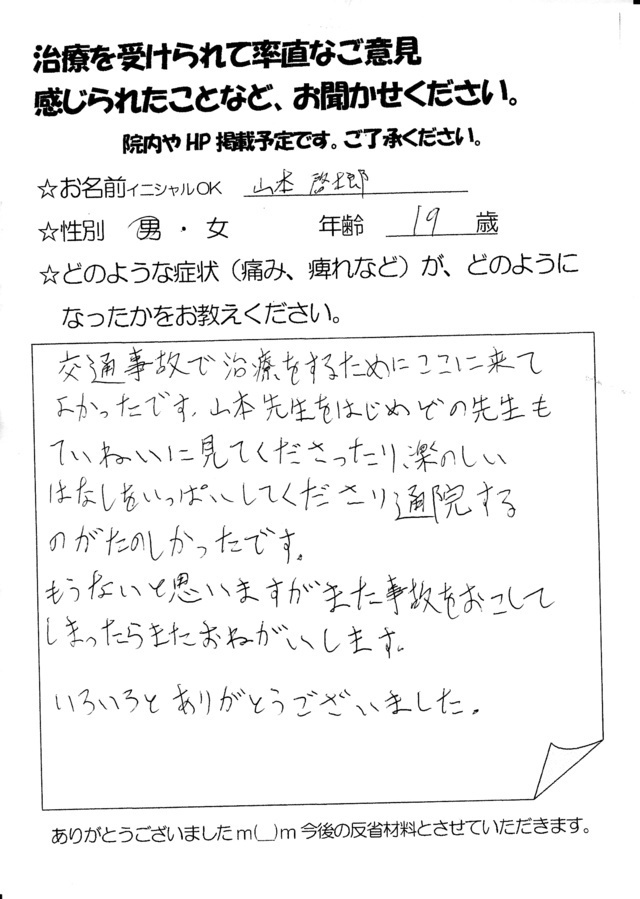 治療を受けられて率直なご意見
感じられたことなど、お聞かせください。
院内やHP掲載予定です。ご了承ください。
☆お名前イニシャルOK 山本 啓太郎
☆性別 男・女 年齢 19 歳
☆どのような症状（痛み、痺れなど）が、どのように
なったかをお教えください。
交通事故で治療をするためにここに来て
よかったです。山本先生をはじめどの先生も
ていねいに見てくださったり、楽のしい
はなしをいっぱいしてくださり通院する
のがたのしかったです。
もうないと思いますがまた事故をおこして
しまったらまたおねがいします。
いろいろとありがとうございました。
ありがとうございましたm(__)m今後の反省材料とさせていただきます。